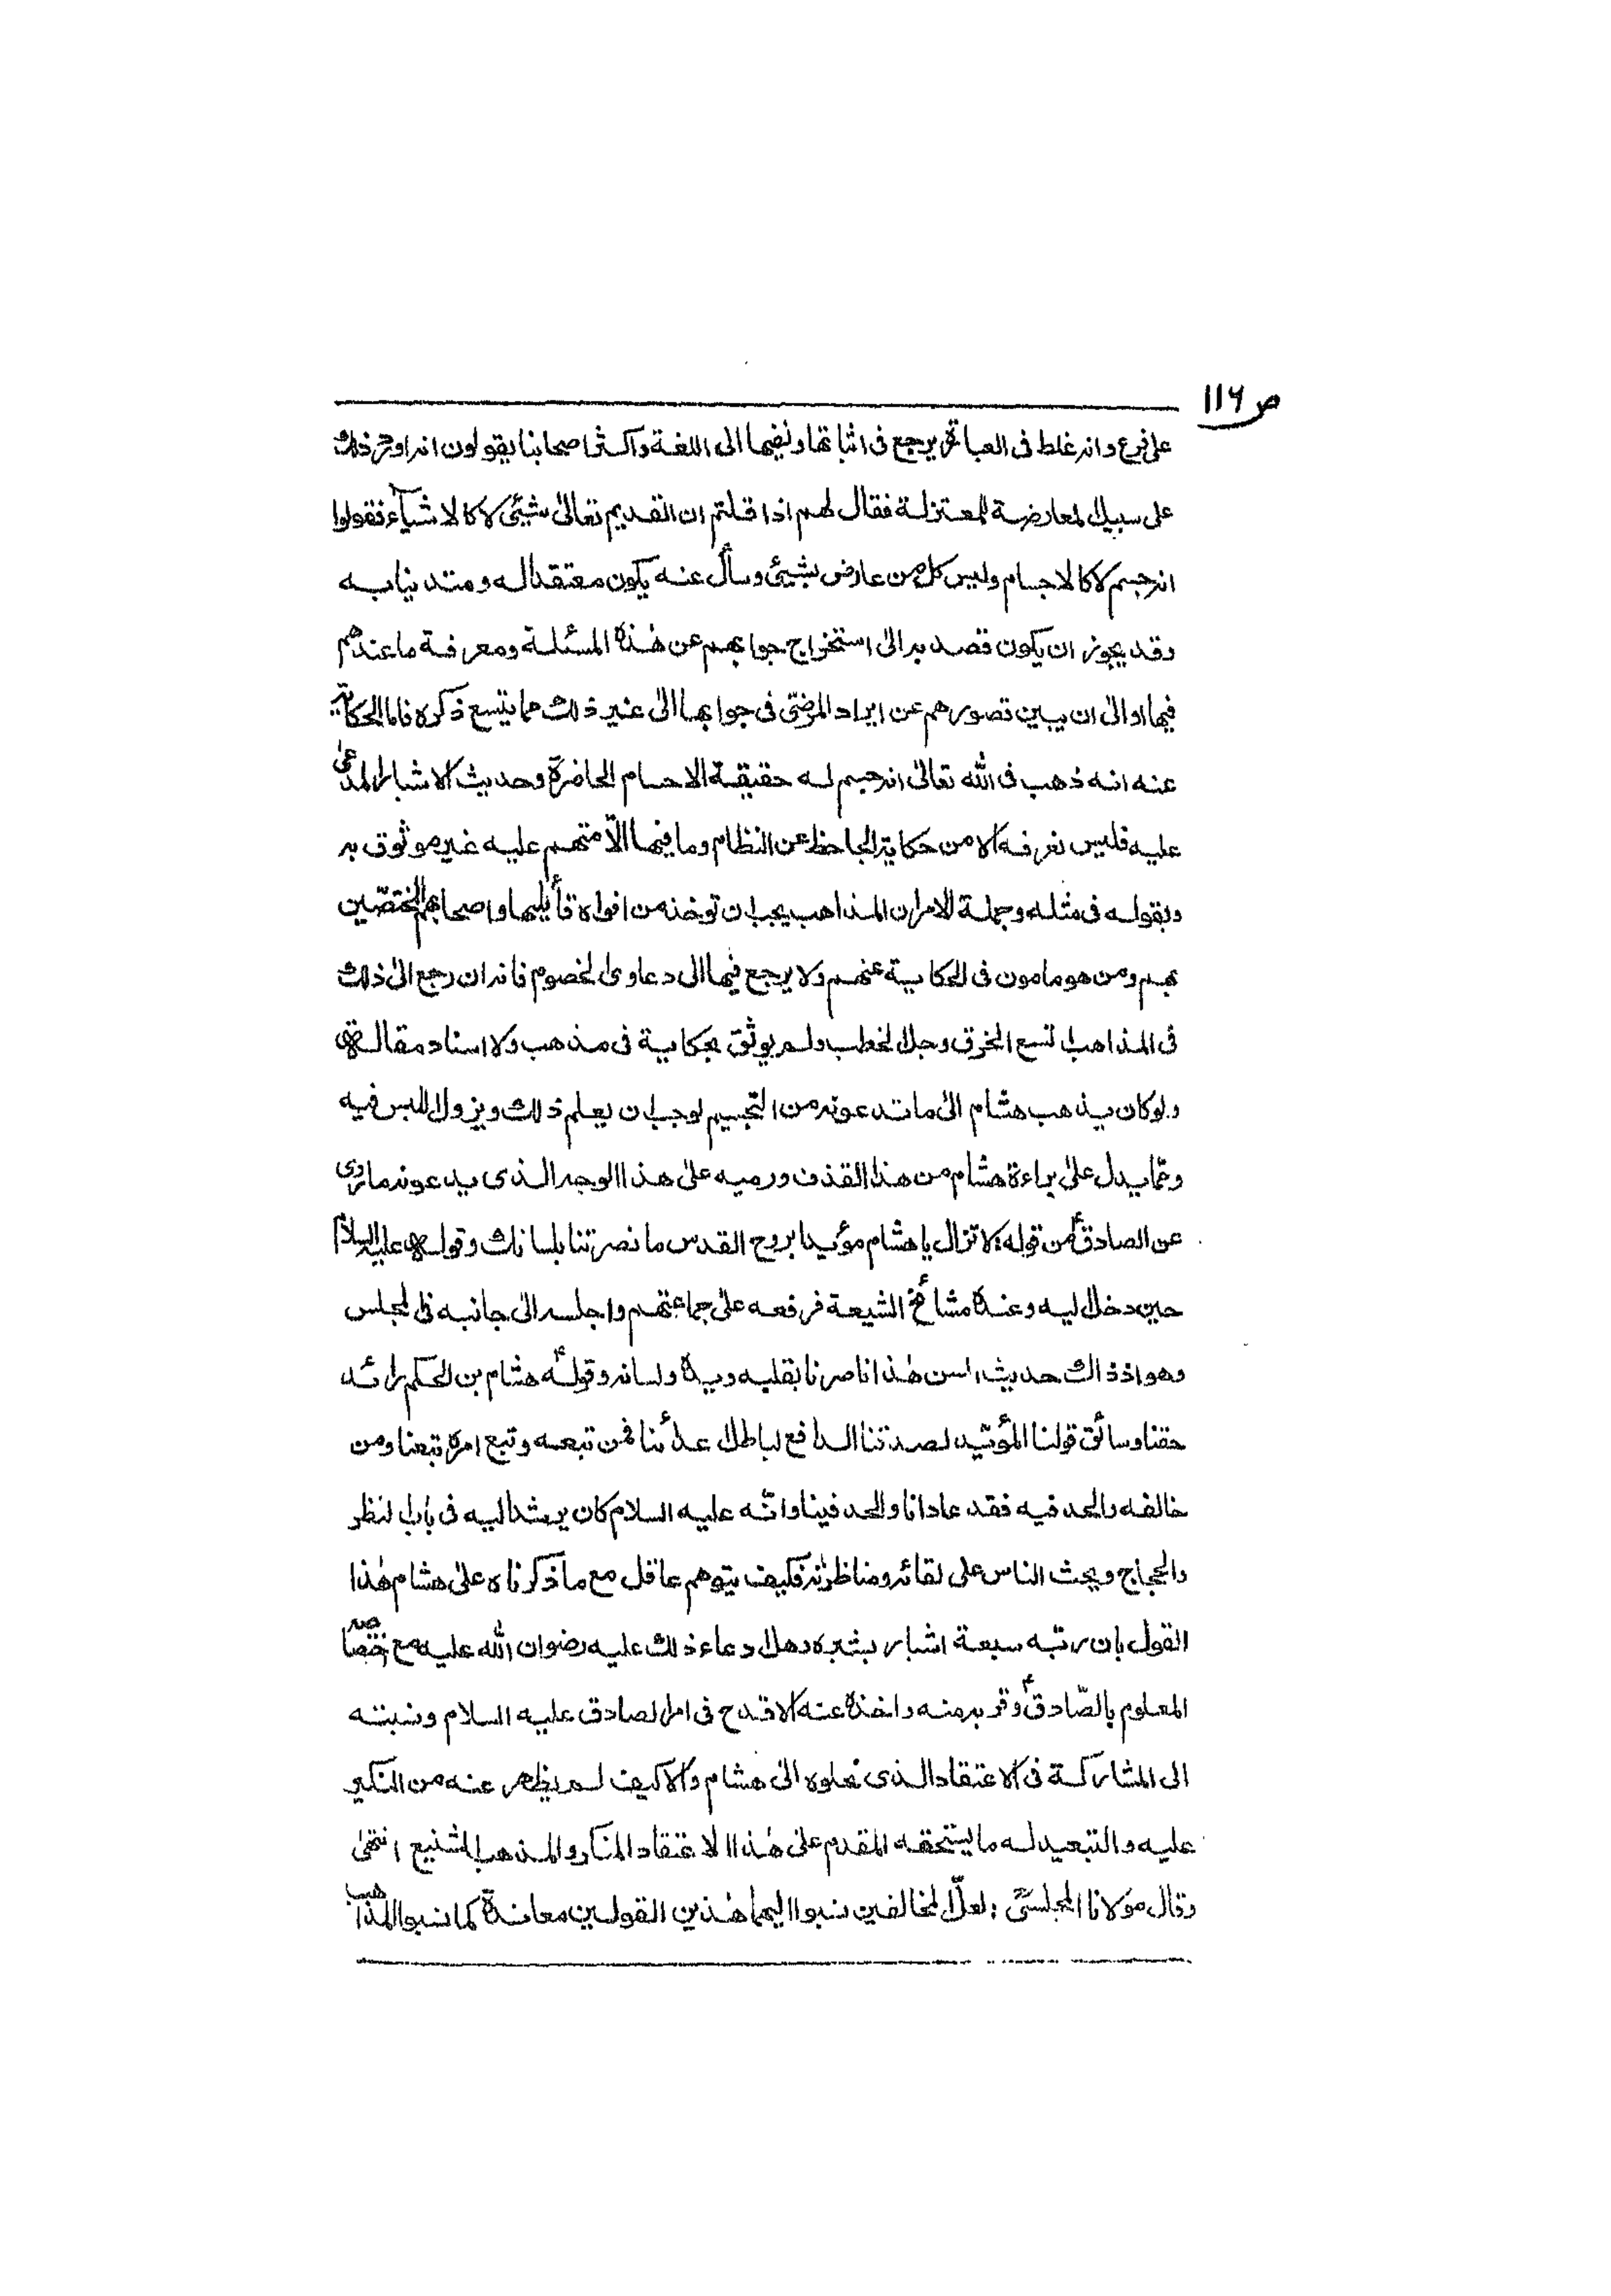 ص ١١٦
على فرع وانه غلط فى العبارة يرجع فى اثباتها ونفيها الى اللغة واكثر اصحابنا يقولون انه اورد ذلك
على سبيل المعارضة للمعتزلة فقال لهم اذا قلتم ان القديم تعالىٰ شيئى لا كالاشياء فقولوا
انه جسم لا كالاجسام وليس كل من عارض بشيئى وسأل عنه يكون معتقدا له ومتدينا به
وقد يجوز ان يكون قصد به الىٰ استخراج جوابهم عن هٰذه المسئلة ومعرفة ما عندهم
فيها او الىٰ ان يبين تصورهم عن ايراد المرضىّ فى جوابها الىٰ غير ذلك مما يتسع ذكره فاما الحكاية
عنه انه ذهب فى الله تعالىٰ انه جسم له حقيقة الاجسام الحاضرة وحديث الاشبار المدعىٰ
عليه فليس نعرفه الا من حكاية الجاحظ عن النظام وما فيها الّا متهم عليه غير موثوق به
وبقوله فى مثله وجملة الامر ان المذاهب يجب ان توخذ من افواه قائليها واصحابهم المختصّين
بهم ومن هو مامون فى الحكاية عنهم ولا يرجع فيها الى دعاوى الخصوم فانه ان رجع الىٰ ذلك
فى المذاهب اتسع الخرق وجل الخطب ولم يوثق بحكاية فى مذهب ولا اسناد مقالة
ولو كان يذهب هشام الىٰ ما تدعونه من التجسيم لوجب ان يعلم ذلك ويزول اللبس فيه
وممّا يدل علىٰ براءة هشام من هذا القذف ورميه علىٰ هذا الوجه الذى يدعونه ما روى
عن الصادقؑ من قوله: لا تزال يا هشام مؤيدا بروح القدس ما نصرتنا بلسانك وقوله عليه السلام
حين دخل اليه وعنده مشائخ الشيعة فرفعه علىٰ جماعتهم واجلسه الىٰ جانبه فى المجلس
وهو اذ ذاك حديث السن هٰذا ناصرنا بقلبه ويده ولسانه وقولهؑ هشام بن الحكم رائد
حقنا وسائق قولنا المؤيد لصدقنا الدافع لباطل اعدائنا فمن تبعه وتبع امره تبعنا ومن
خالفه والحد فيه فقد عادانا والحد فينا وانّه عليه السلام كان يرشد اليه فى باب النظر
والحجاج ويحث الناس على لقائه ومناظرته فكيف يتوهم عاقل مع ما ذكرناه علىٰ هشام هٰذا
القول بان ربه سبعة اشبار بشبره وهل ادعاء ذلك عليه رضوان الله عليه مع اختصاصه
المعلوم بالصّادقؑ وقربه منه واخذه عنه الا قدح فى امر الصادق عليه السلام ونسبته
الى المشاركة فى الاعتقاد الذى نحلوه الىٰ هشام والا كيف لم يظهر عنه من النكير
عليه والتبعيد له ما يستحقه المقدم علىٰ هٰذا الاعتقاد المنكر والمذهب الشنيع انتهىٰ
وقال مولانا المجلسىؒ: لعلّ المخالفين نسبوا اليهما هٰذين القولين معاندة كما نسبوا المذاهب